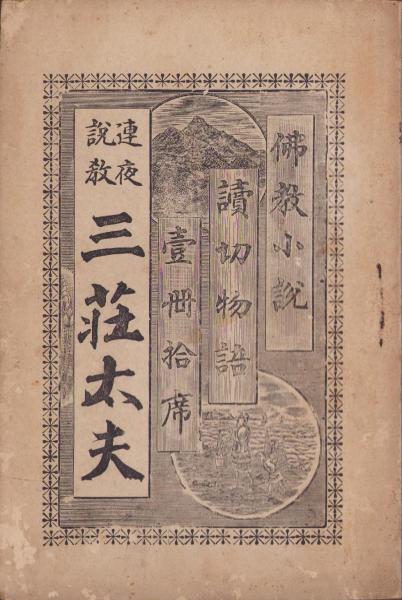 佛教小説
讀切物語
壹冊拾席
連夜
説教
三莊太夫